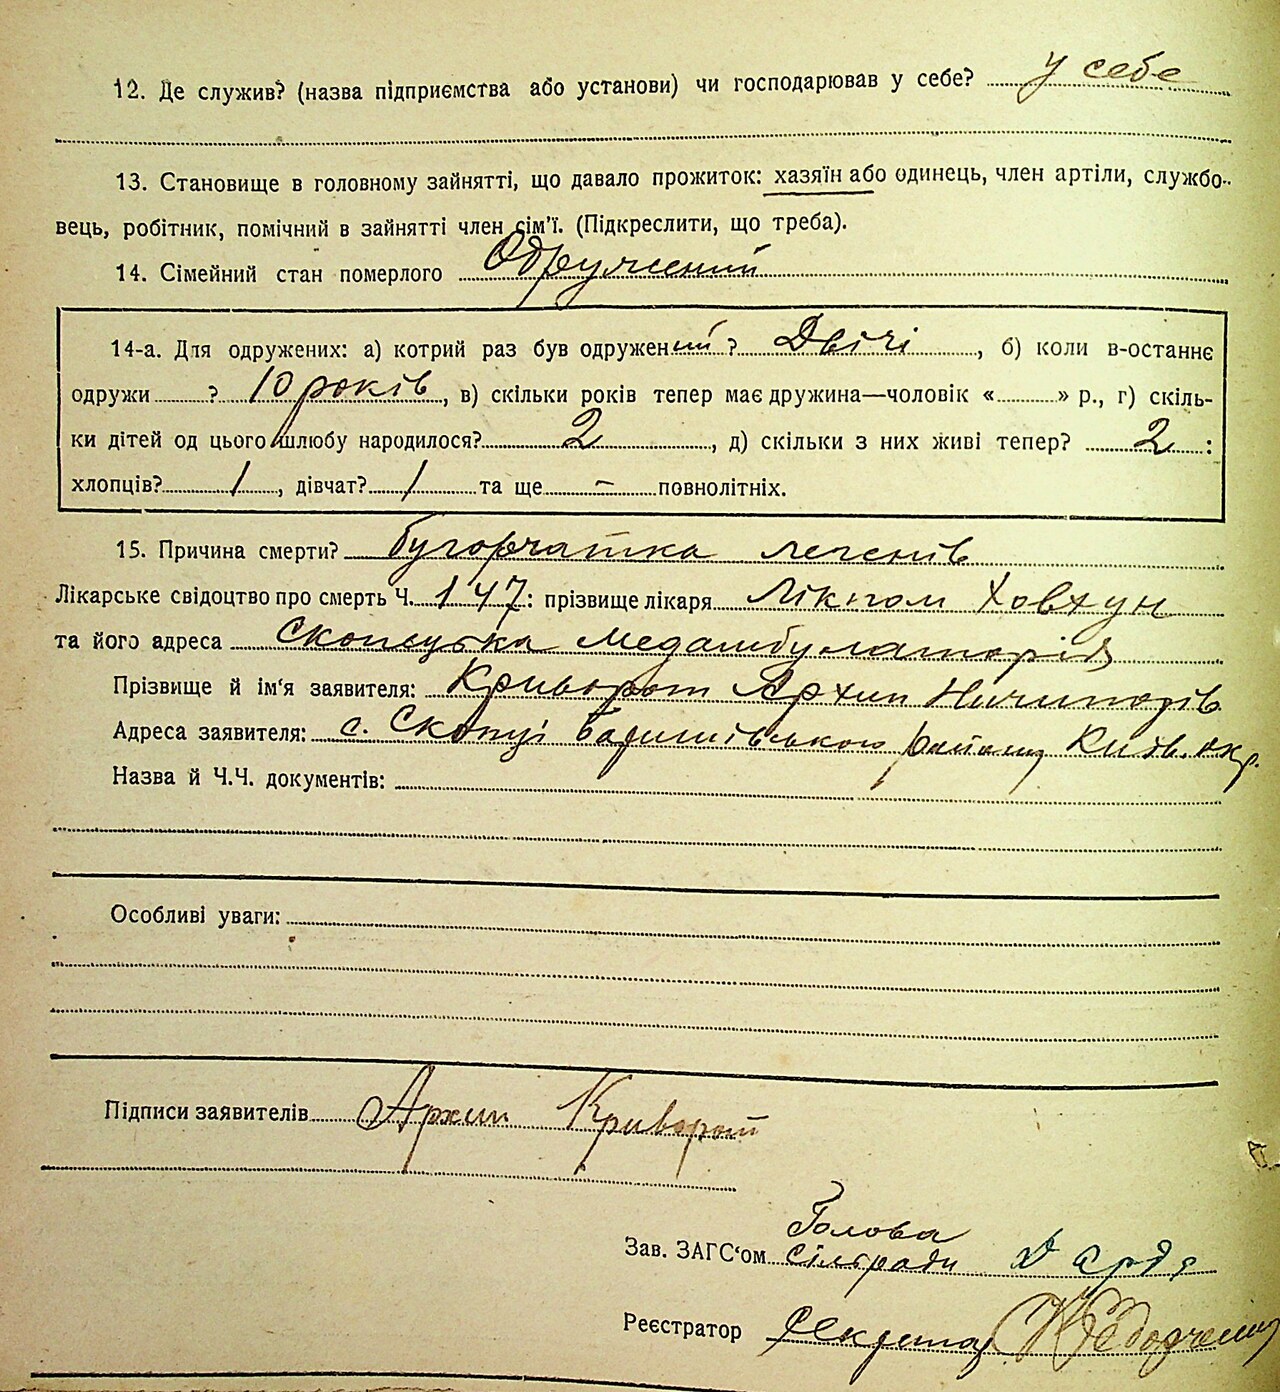 12. Де служив? (назва підприємства або установи) чи господарював у себе? у себе
13. Становище в головному зайнятті, що давало прожиток: хазяїн або одинець, член артіли, службо-
вець, робітник, помічний в зайнятті член сім'ї. (Підкреслити, що треба).
14. Сімейний стан померлого Одружений
14-а. Для одружених: а) котрий раз був одружений? Двічі, б) коли в-останнє
одружи ? 10 років, в) скільки років тепер має дружина—чоловік « » р., г) скіль-
ки дітей од цього шлюбу народилося? 2, д) скільки з них живі тепер? 2 :
хлопців? 1, дівчат? 1 та ще – повнолітніх.
15. Причина смерти? бугорчатка легенів
Лікарське свідоцтво про смерть Ч. 147: прізвище лікаря Лікпом Ховхун
та його адреса Скопецька Медамбулаторія
Прізвище й ім'я заявителя: Криворот Архип Ничипорів
Адреса заявителя: с. Скопці Баришівського району Київ. окр.
Назва й Ч.Ч. документів:
Особливі уваги:
Підписи заявителів Архип Криворот
Голова
Зав. ЗАГС'ом сільради
Реєстратор Секретар